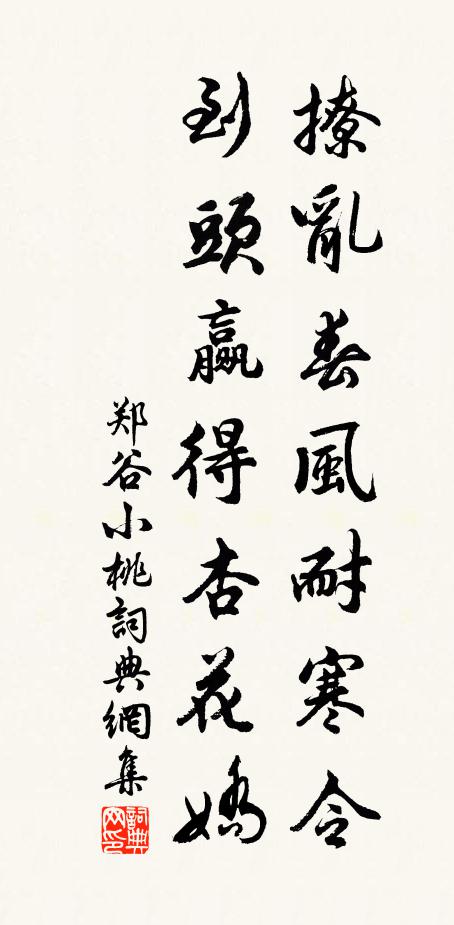 撩亂春風耐寒令
到頭贏得杏花嬌
郑谷小桃詞典網集
詞典网印